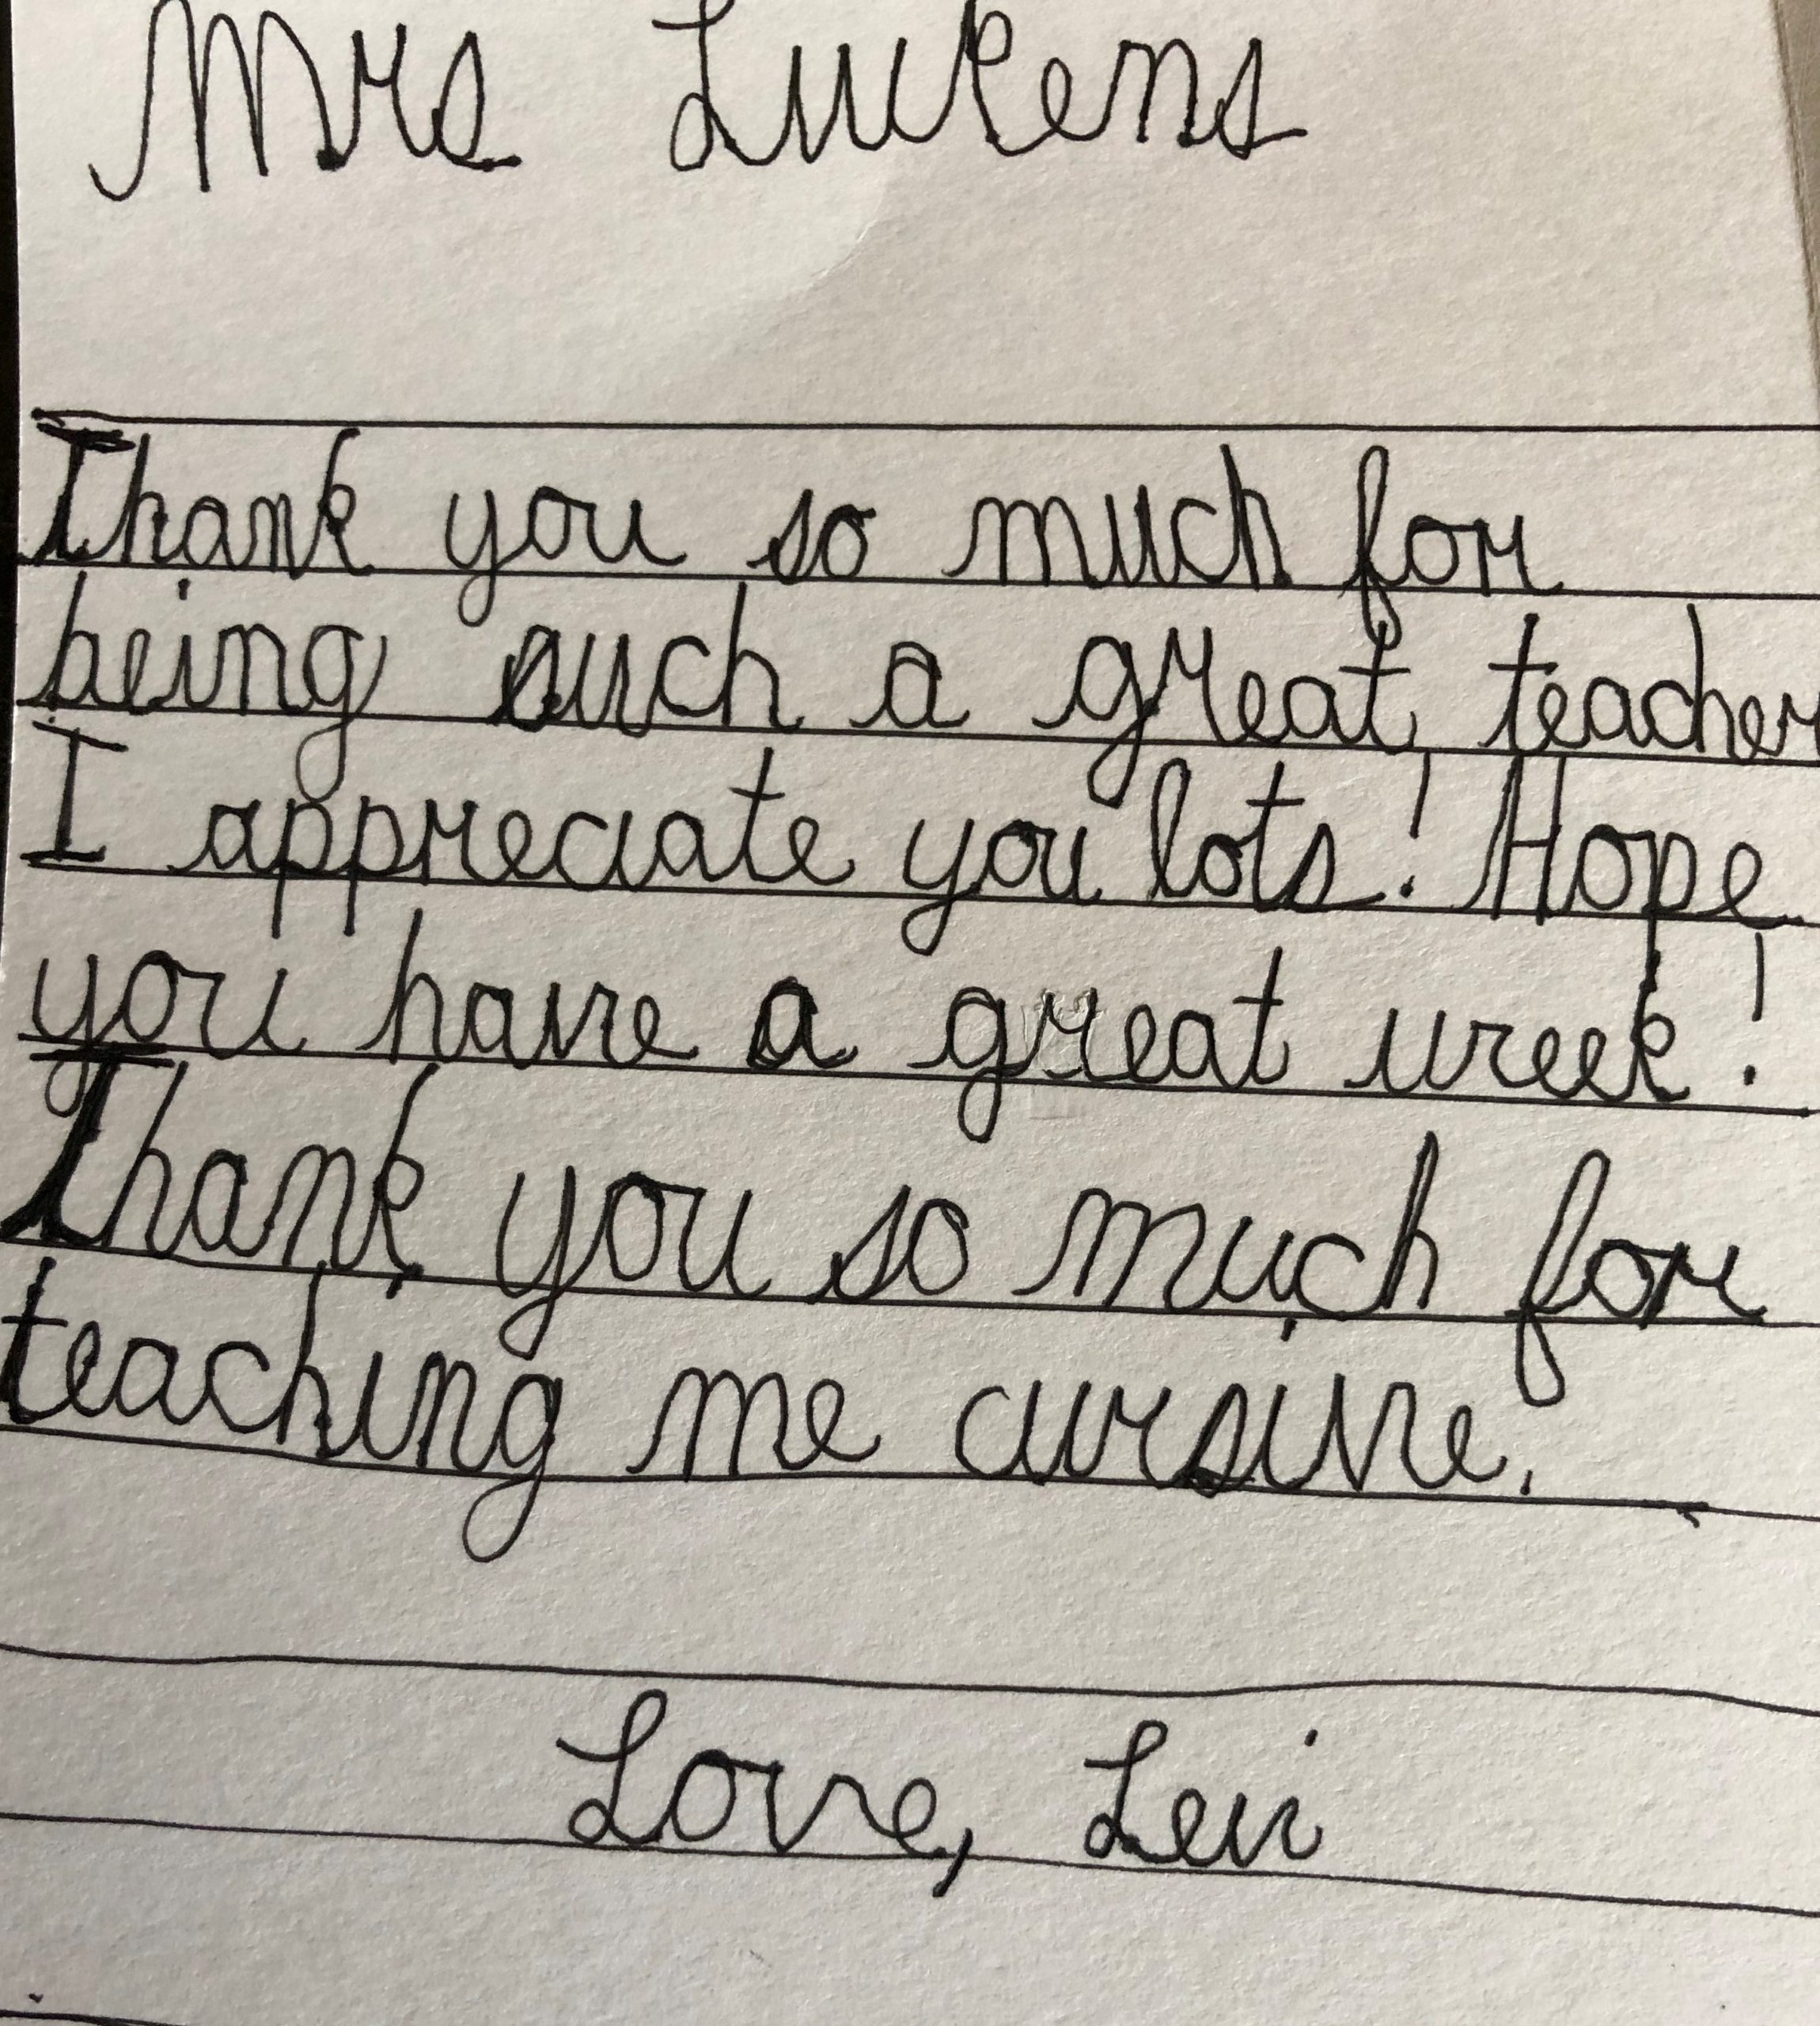 Mrs Lukens
Thank you so much for
being such a great teacher
I appreciate you lots! Hope
you have a great week!
Thank you so much for
teaching me cursive.
Love, Levi